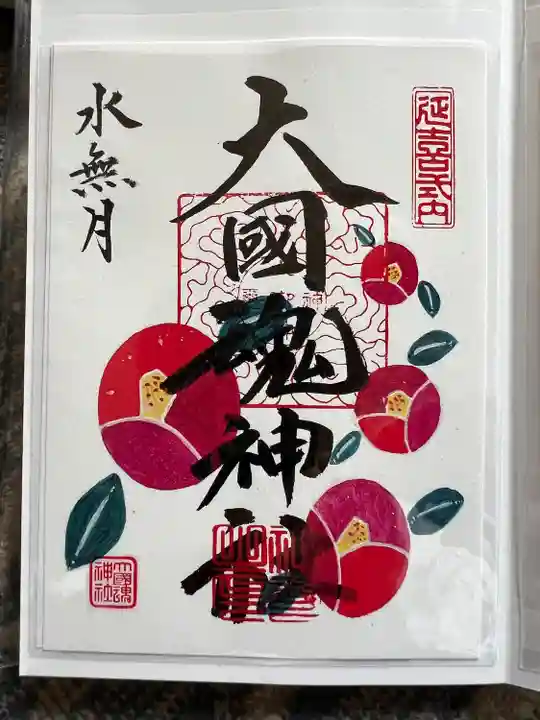 延喜式内
大國魂神社
水無月
大國魂
神社